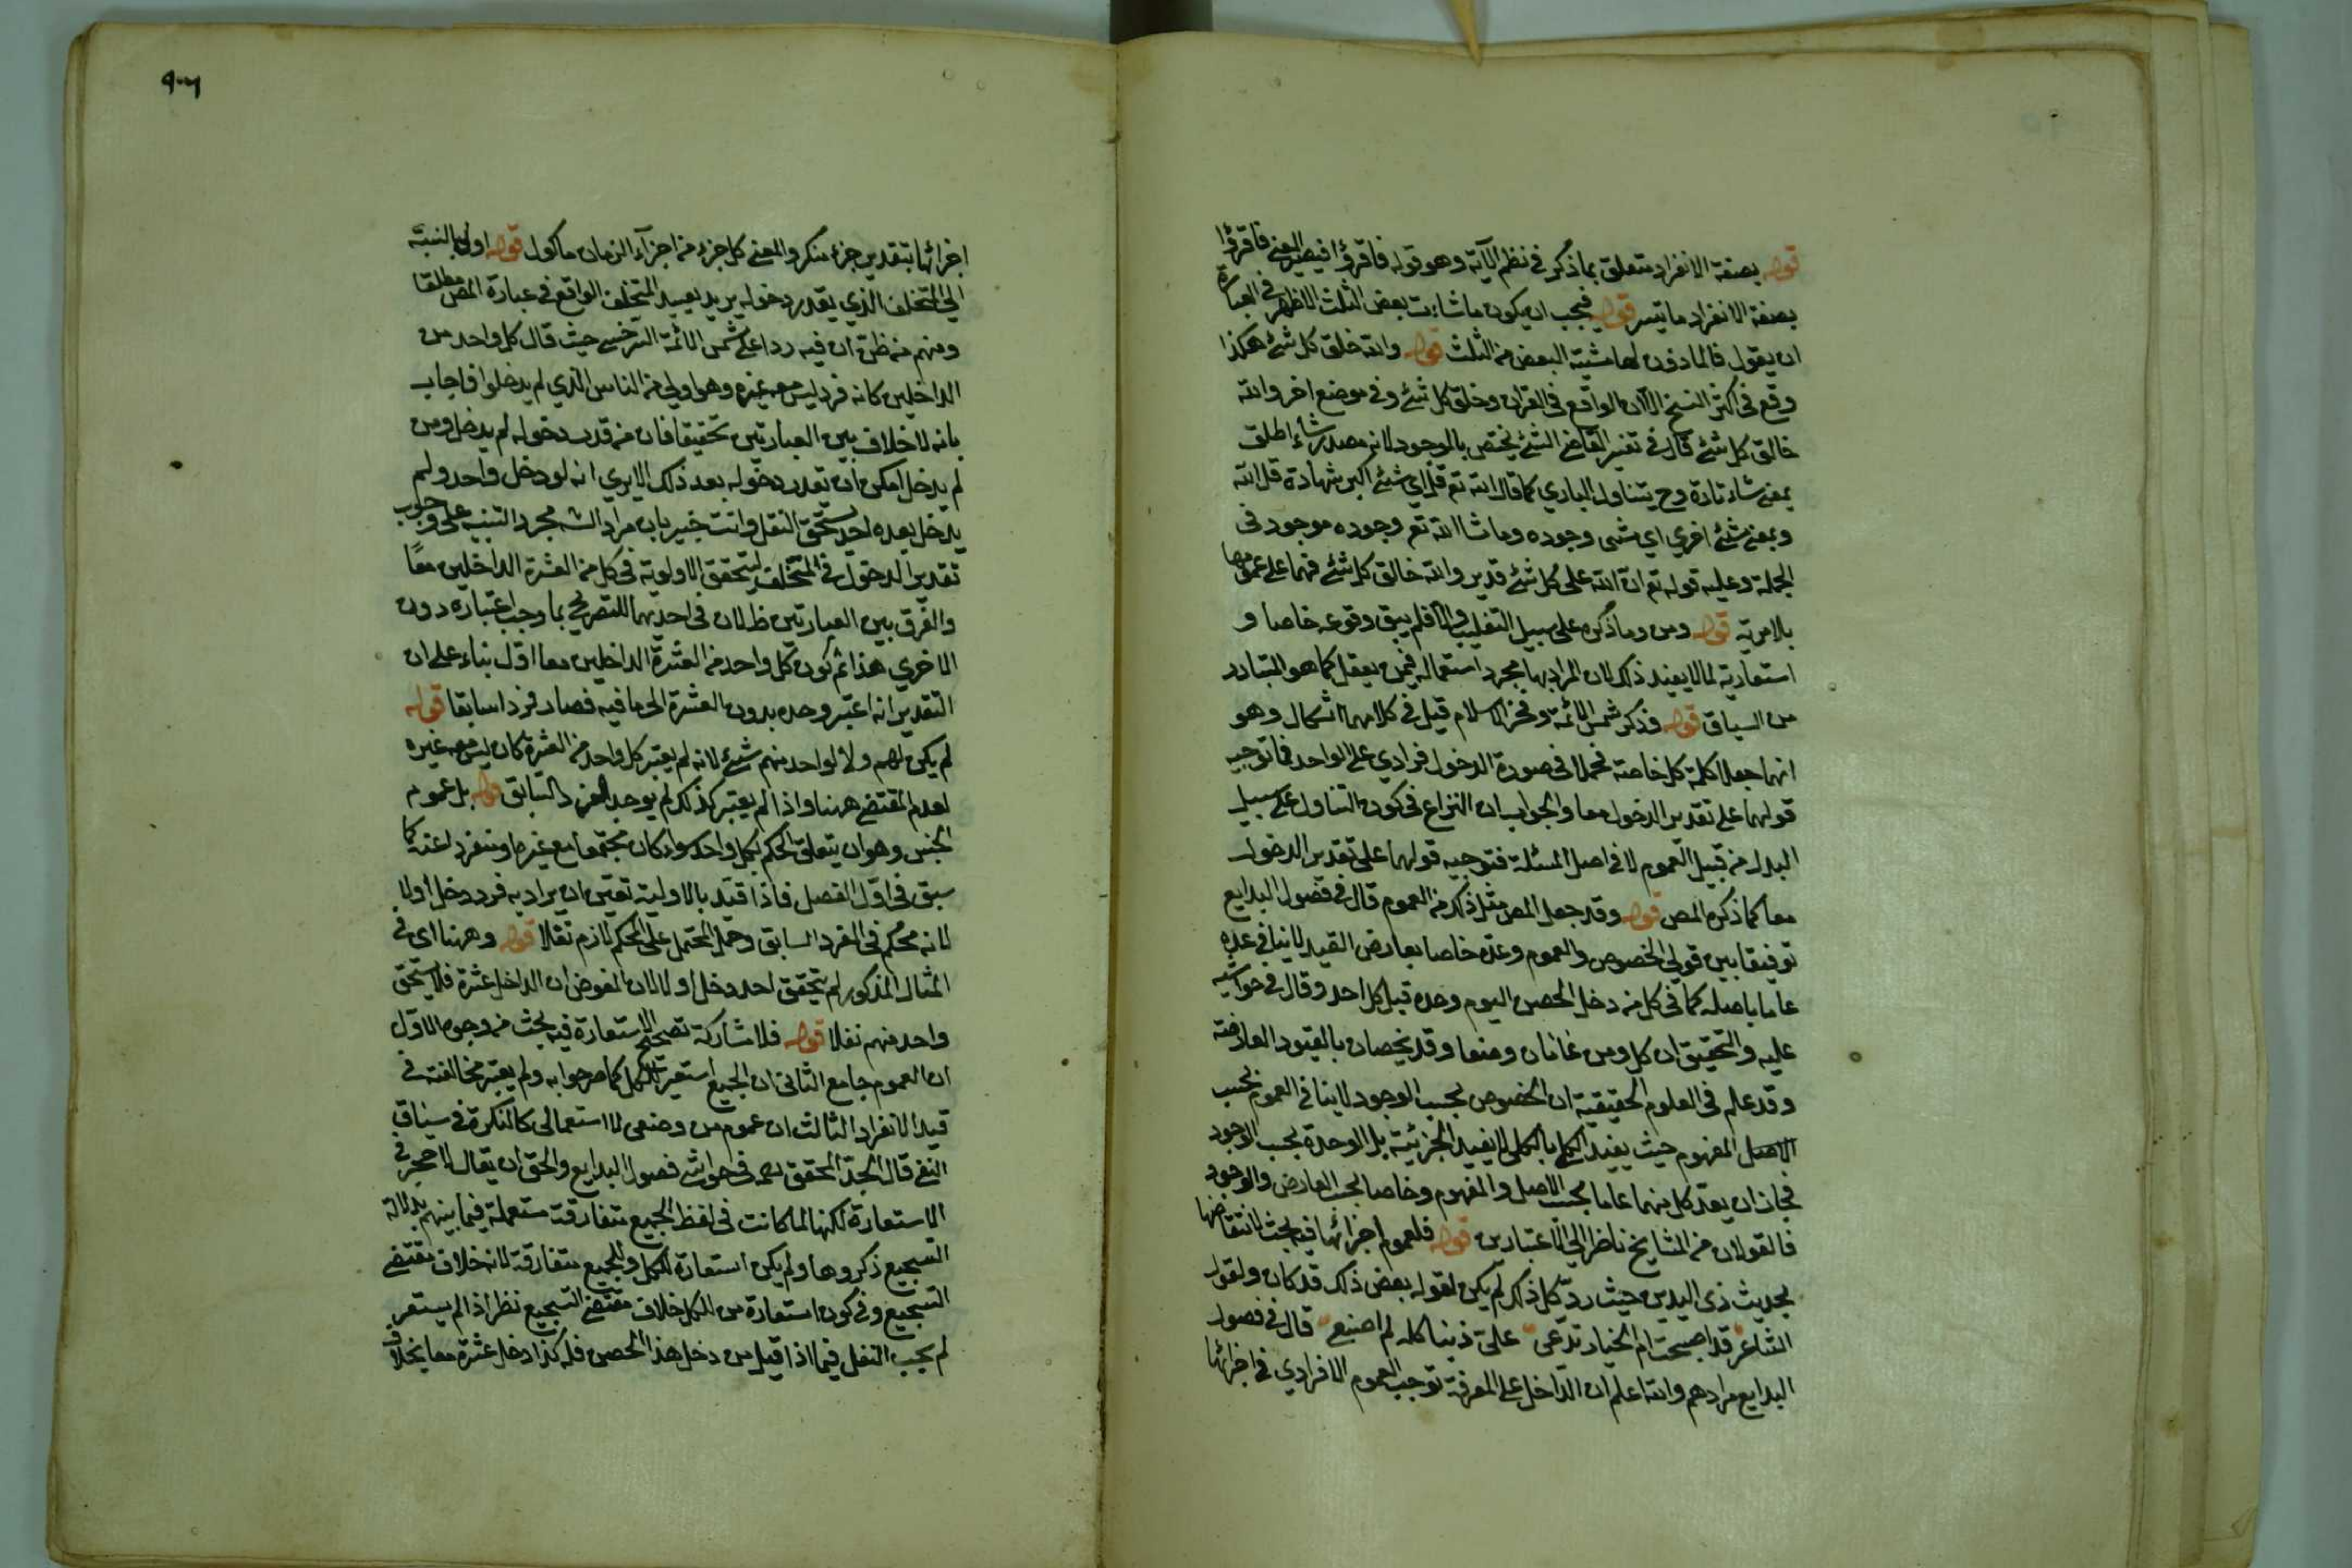 قوله بصفة الانفراد متعلق بما ذكر في نظم الآية وهو قوله فاقرؤا فيصير المعنى فاقرؤا
بصفة الانفراد ما تيسر قوله فيجب ان يكون ما شاءت بعض الثلث الاظهر في العبارة
ان يقول فالماذون لها مشيته البعض من الثلث قوله والله خلق كل شئ هكذا
وقع في اكثر النسخ الا ان الواقع في القران وخلق كل شئ وفي موضع اخر والله
خالق كل شئ قال في تفسير القاضي الشئ يختص بالموجود لانه مصدر شاء اطلق
بمعنى شاء تارة وح يتناول الباري كما قال الله تع قل اي شئ اكبر شهادة قل الله
وبمعنى مشئ اخري اي مشي وجوده وما شا الله تع وجوده موجود في
الجملة وعليه قوله تع ان الله على كل شئ قدير والله خالق كل شئ فهما على عمومهما
بلا مرية قوله ومن وما ذكره على سبيل التغليب والا فلم يبق وقوعه خاصا و
استعارية لما لا يفيد ذلك لان المراد بها مجرد استعماله فيمن يعقل كما هو المتبادر
من السياق قوله فذكر شمس الائمة وفخر الاسلام قيل في كلامهما اشكال وهو
انهما جعلا كلمة كل خاصة فحملا في صورة الدخول فرادي على الواحد فما توجيه
قولهما على تقدير الدخول معا والجواب ان النزاع في كون التناول على سبيل
البدل من قبيل العموم لا في اصل المسئلة فتوجيه قولهما على تقدير الدخول
معا كما ذكره المص قوله وقد جعل المص مثل ذلك من العموم قال في فصول البدايع
توفيقا بين قولي الخصوص والعموم وعده خاصا بعارض القيد لا ينافي عده
عاما باصله كما في كل من دخل الحصن اليوم وحده قبل كل احد وقال في حواشيه
عليه والتحقيق ان كل ومن عامان وضعا وقد يخصان بالقيود العارضة
وقد علم في العلوم الحقيقية ان الخصوص بحسب الوجود لا ينافي العموم بحسب
الاصل المفهوم حيث يفيد الكلي بالكلي لا يفيد الجزئية بل الوحدة بحسب الوجود
فجاز ان يعد كل منهما عاما بحسب الاصل والمفهوم وخاصا بحسب العارض والوجود
فالقولان من المشايخ ناظر الى الاعتبارين قوله فلعموم اجزائها فيه بحث لانتقاضها
بحديث ذي اليدين حيث رد كل ذلك لم يكن لقوله بعض ذلك قد كان ولقول
الشاعر قد اصبحت ام الخيار تدعي على ذنبا كله لم اصنع قال في فصول
البدايع مرادهم والله اعلم ان الداخل على المعرفة توجب العموم الافرادي في اجزائها
٩٠٦
اجزائها بتقدير جزء منكر والمعنى كل جزء من اجزآء الرمان ماكول قوله اول بالنسبة
الى المتخلف الذي يقدر دخوله يريد تقييد المتخلف الواقع في عبارة المص مطلقا
ومنهم من ظن ان فيه ردا على شمس الائمة السرخسي حيث قال كل واحد من
الداخلين كانه فرد ليس معه غيره وهو اولي من الناس الذي لم يدخلوا فاجاب
بانه لا خلاف بين العبارتين تحقيقا فان من قدر دخوله لم يدخل ومن
لم يدخل امكن ان تقدر دخوله بعد ذلك الا يري انه لو دخل واحد ولم
يدخل بعده احد يستحق النفل وانت خبير بان مراد الشـ مجرد التنبيه على وجوب
تقدير الدخول في المتخلف لتحقق الاولوية في كل من العشرة الداخلين معًا
والفرق بين العبارتين ظ لان في احديهما للتصريح بما وجب اعتباره دون
الاخري هذا ثم كون كل واحد من العشرة الداخلين معا اول بناء على ان
التقدير انه اعتبر وحده بدون العشرة الى ما فيه فصار فردا سابقا قوله
لم يكن لهم ولا لواحد منهم شئ لانه لم يعتبر كل واحد من العشرة كان ليس معه غيره
لعدم المقتضى ههنا واذا لم يعتبر كذلك لم يوجد الفرد السابق قوله بل عموم
الجنس وهو ان يتعلق الحكم بكل واحد سواء كان مجتمعا مع غيره او منفردا عنه كما
سبق في اول الفصل فاذا قيد بالاولية تعين ان يراد به فرد دخل اولا
لانه محكم في الفرد السابق وحمل المحتمل على المحكم لازم نقلا قوله وههنا اي في
المثال المذكور لم يتحقق احد دخل اولا لان المفروض ان الداخل عشرة فلا يستحق
واحد منهم نفلا قوله فلا مشاركة تصحح الاستعارة فيه بحث من وجوه الاول
ان العموم جامع الثاني ان الجميع استعير للكل كما صرحوا به ولم يعتبر مخالفته في
قيد الانفراد الثالث ان عموم من وضعي لا استعمالي كالنكرة في سياق
النفي قال الجد المحقق رحمه في حواشي فصول البدايع والحق ان يقال لا حجر في
الاستعارة لكنها لما كانت في لفظ الجميع متفارقة مستعملة فيما بينهم بدلالة
التسجيع ذكروها ولم يكن استعارة للكل وللجميع متفارقة لانه خلاف مقتضى
التسجيع وفي كون استعارة من للكل خلاف مقتضى التسجيع نظر اذ لم يستعر
لم يجب النفل فيما اذا قيل من دخل هذا الحصن فله كذا دخل عشرة معا بخلاف